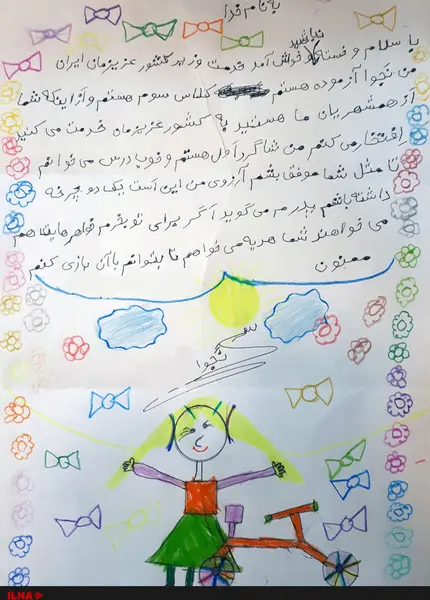 به نام خدا
با سلام و خسته نباشید خوش آمد خدمت وزیر کشور عزیزمان ایران
من نجوا آزموده هستم کلاس سوم هستم و از اینکه شما
از همشهریان ما هستید به کشور عزیزمان خدمت می کنید
افتخار می کنم من شاگرد اول هستم و خوب درس می خوانم
تا مثل شما موفق بشم آرزوی من این است یک دو چرخه
داشته باشم پدرم می گوید اگر برای تو بخرم خواهرهایت هم
می خواهند شما هدیه می خواهم تا بتوانم با آن بازی کنم
ممنون
نجوا
ILNA